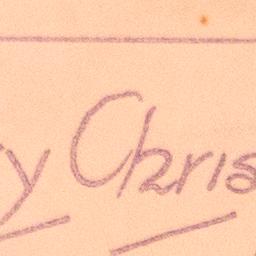 y Chris